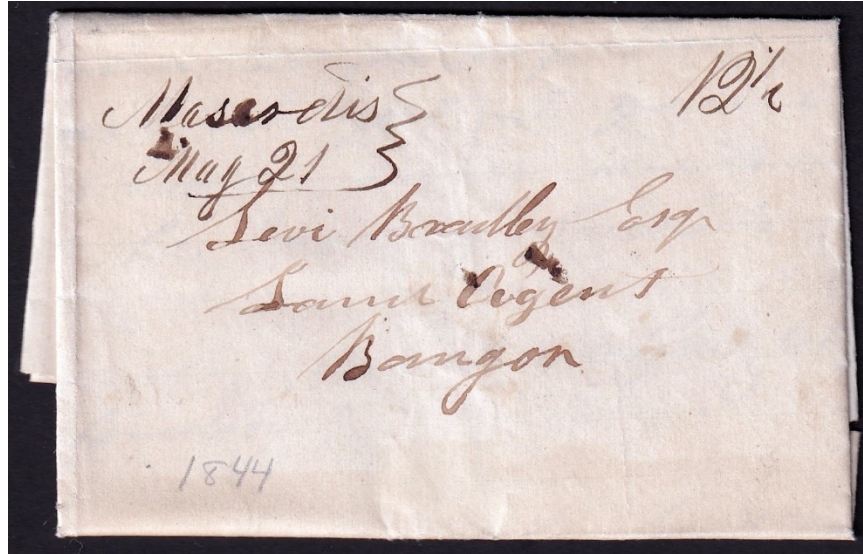 Masardis
12½
May 21
Levi Bradley Esqr
Land Agent
Bangor
1844